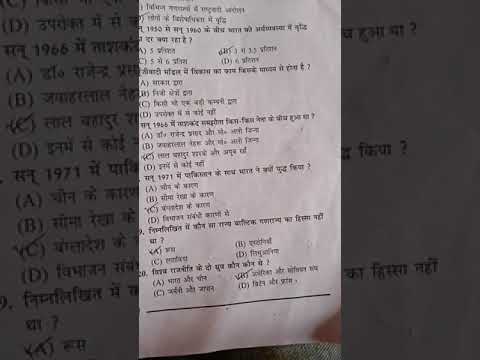 (B) किसी
(C) विभिन्न गणराज्यों में राष्ट्रवादी आन्दोलन
(D) लोगों के विशेषाधिकार में वृद्धि
सन् 1950 से सन् 1960 के बीच भारत की अर्थव्यवस्था में वृद्धि
दर क्या रहा है ?
(A) 5 प्रतिशत (B) 3 से 3.5 प्रतिशत
(C) 5 से 6 प्रतिश (D) 6 प्रतिशत
पूँजीवादी मॉडल में विकास का काम किसके माध्यम से होता है ?
(A) सरकार द्वारा
(B) निजी क्षेत्रों द्वारा
(C) किसी भी एक बड़ी कम्पनी द्वारा
(D) उपरोक्त में से कोई नहीं
सन् 1966 में ताशकंद समझौता किस-किस नेता के बीच हुआ था ?
(A) डॉ० राजेन्द्र प्रसाद और मो० अली जिन्ना
(B) जवाहरलाल नेहरू और मो० अली जिन्ना
(C) लाल बहादुर शास्त्री और अयूब खाँ
(D) इनमें से कोई नहीं
सन् 1971 में पाकिस्तान के साथ भारत ने क्यों युद्ध किया ?
(A) चीन के कारण
(B) सीमा रेखा के कारण
(C) बंग्लादेश के कारण
(D) विभाजन संबंधी कारणों से
9. निम्नलिखित में कौन सा राज्य बाल्टिक गणराज्य का हिस्सा नहीं
था ?
(A) रूस (B) एस्टोनिया
(C) लताविया (D) लिथुआनिया
20. विश्व राजनीति के दो ध्रुव कौन कौन थे ?
(A) भारत और चीन (B) अमेरिका और सोवियत संघ
(C) जर्मनी और जापान (D) ब्रिटेन और फ्रांस